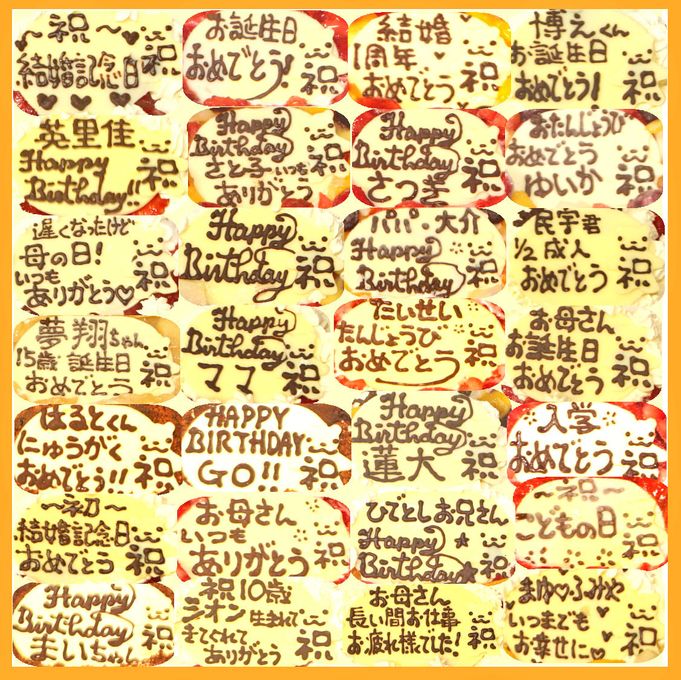 ～祝～
結婚記念日
祝
お誕生日
おめでとう!
祝
結婚
1周年
おめでとう
祝
博えくん
お誕生日
おめでとう!
祝
英里佳
Happy
Birthday!!
祝
Happy
Birthday
さと子いつも
ありがとう
祝
Happy
Birthday
さつき
祝
おたんじょうび
おめでとう
ゆいか
祝
遅くなったけど
母の日!
いつも
ありがとう♡
祝
Happy
Birthday
祝
パパ・大介
Happy
Birthday
祝
民宇君
1/2成人
おめでとう
祝
夢翔ちゃん
15歳 誕生日
おめでとう
祝
Happy
Birthday
ママ
祝
たいせい
たんじょうび
おめでとう
祝
お母さん
お誕生日
おめでとう
祝
はるとくん
にゅうがく
おめでとう!!
祝
HAPPY
BIRTHDAY
GO!!
祝
Happy
Birthday
蓮大
祝
入学
おめでとう
祝
～初～
結婚記念日
おめでとう
祝
お母さん
いつも
ありがとう
祝
ひでとしお兄さん
Happy
Birthday★
祝
～祝～
こどもの日
祝
Happy
Birthday
まいちゃん
祝
祝10歳
シオン生まれて
きてくれて
ありがとう
祝
お母さん
長い間お仕事
お疲れ様でした!
祝
まゆ♡ふみや
いつまでも
お幸せに♡
祝